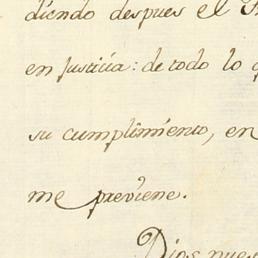 diendo despues el
en Justicia: de todo lo
su cumplimiento, en
me previene.
Dios